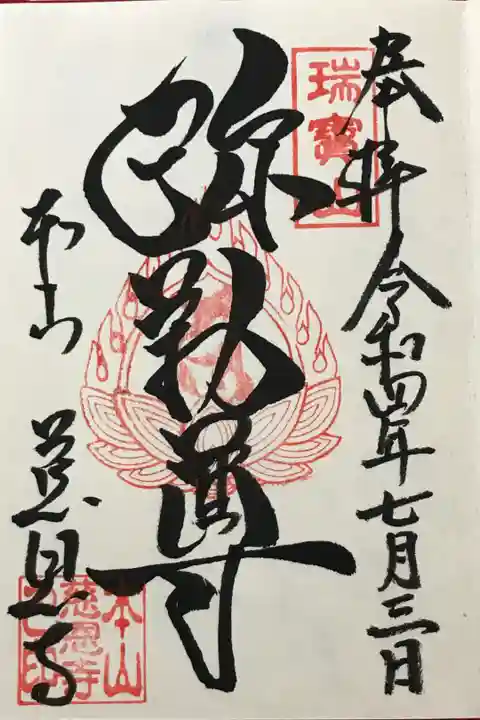 奉拝 令和四年七月三日
瑞寶山
弥勒尊
本山 慈恩寺
本山
慈恩寺
之印